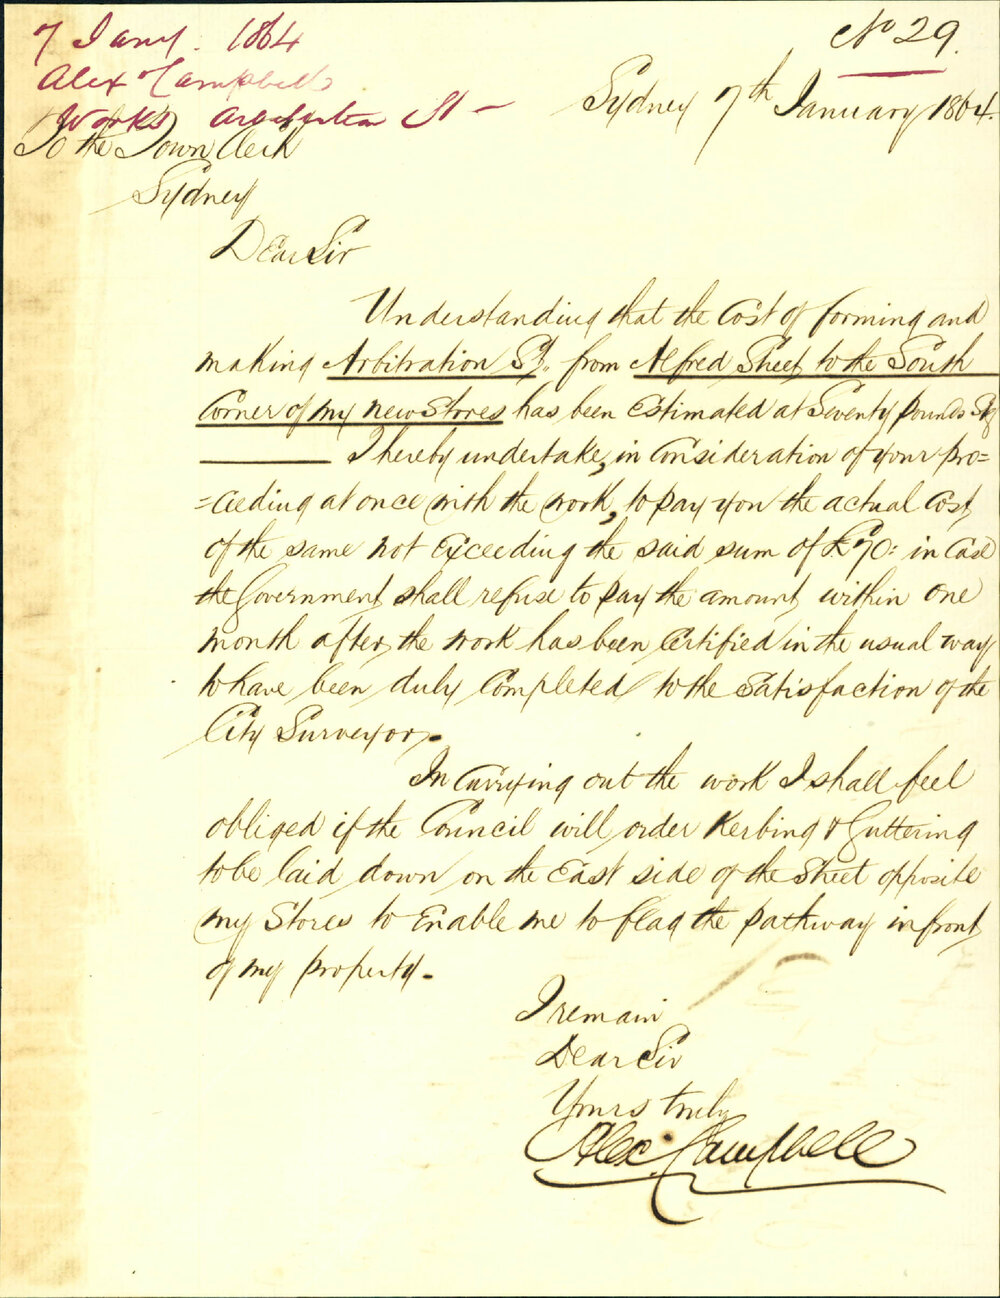 7 Jany. 1864
Alex Campbell
Works Arbitration St -
No 29.
Sydney 7th January 1864.
To the Town Clerk
Sydney
Dear Sir
Understanding that the Cost of forming and
making Arbitration St. from Alfred Street to the South
Corner of my new Stores has been Estimated at Seventy pounds Stg
I hereby undertake, in Consideration of your pro=
=ceeding at once with the work, to pay you the actual Cost
of the same not Exceeding the said sum of £70: in Case
the Government shall refuse to pay the amount within One
month after the work has been Certified in the usual way
to have been duly Completed to the Satisfaction of the
City Surveyor.
In Carrying out the work I shall feel
obliged if the Council will order Kerbing & Guttering
to be laid down on the East side of the Street opposite
my Stores to Enable me to flag the pathway in front
of my property.
I remain
Dear Sir
Yours truly
Alex. Campbell